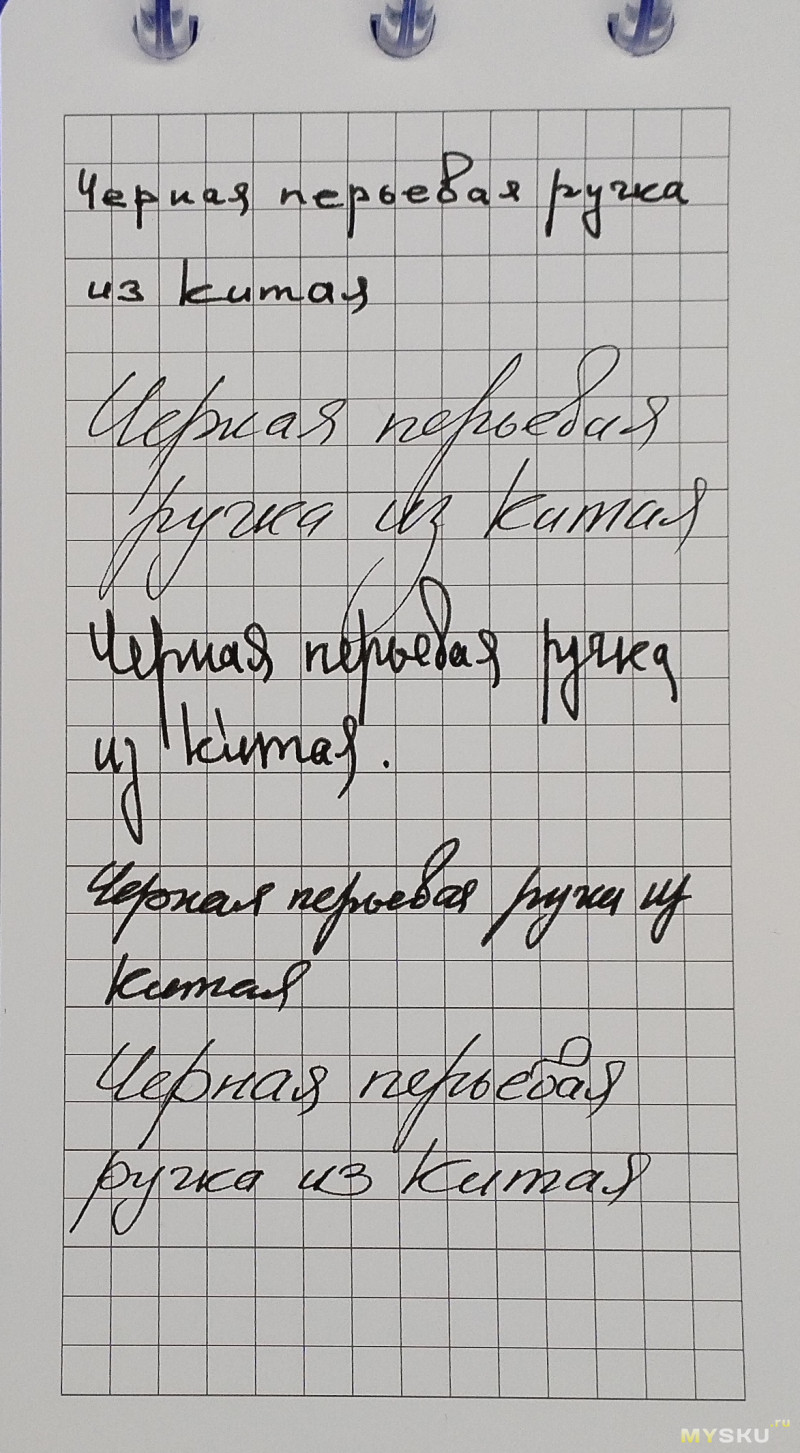 Черная перьевая ручка
из китая
Черная перьевая
ручка из китая
Черная перьевая ручка
из китая.
Черная перьевая ручка из
китая
Черная перьевая
ручка из Китая
MYSKU.ru